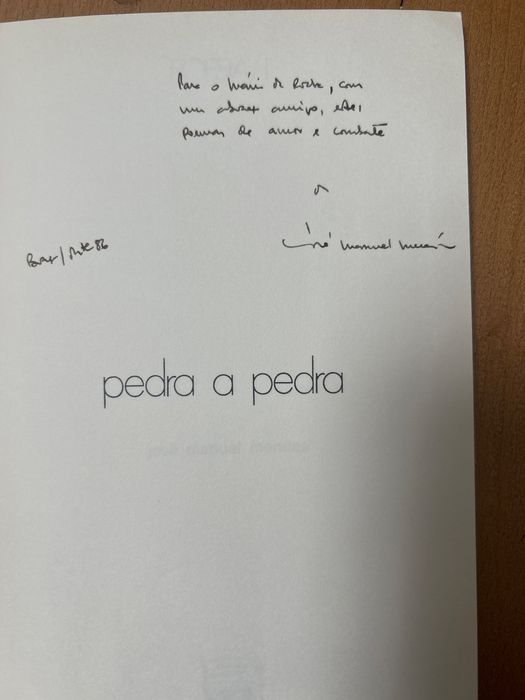 Para o Mário da Rocha, com
um abraço amigo, estes
poemas de amor e combate
o
José Manuel Mendes
86
pedra a pedra
josé manuel mendes